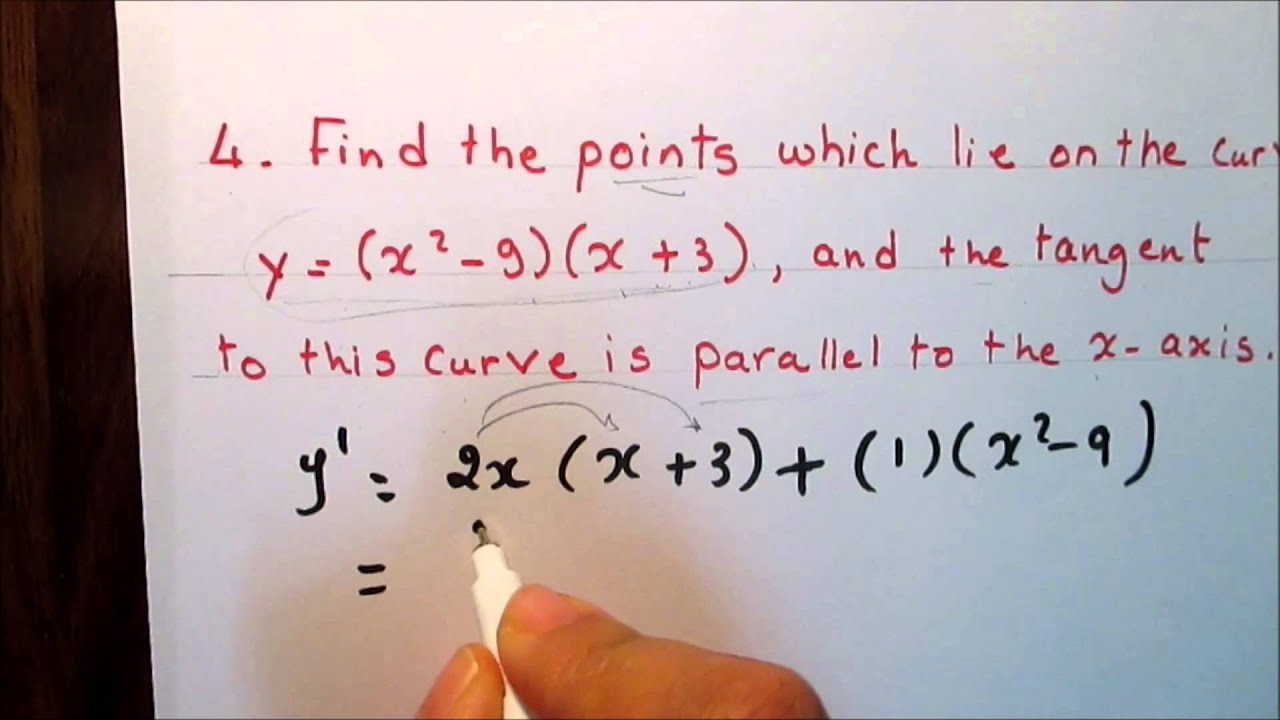 4. Find the points which lie on the cur
y = (x² - 9)(x + 3), and the tangent
to this curve is parallel to the x-axis.
y' = 2x (x + 3) + (1)(x² - 9)
=